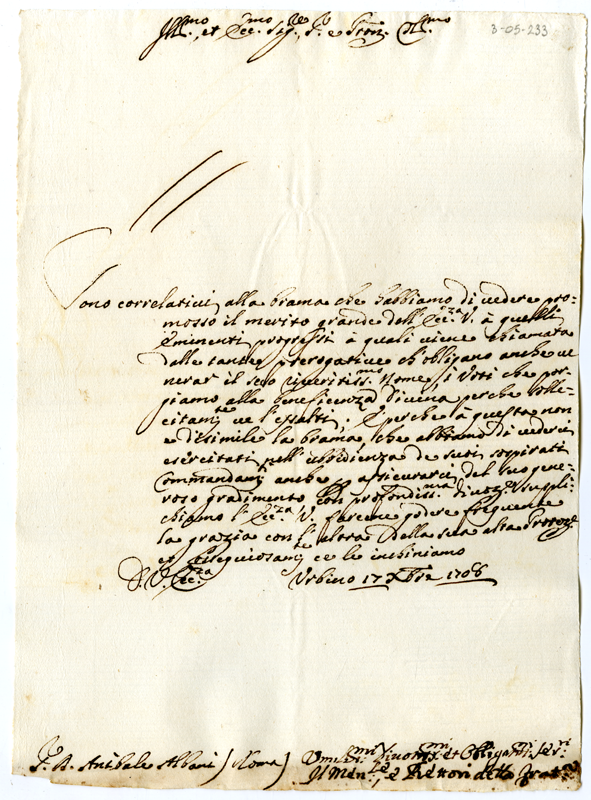 Ill.mo, et Ecc.mo Sig.re, S.r e Pron. Col.mo
3-05-233
Sono correlativi alla brama che habbiamo di vedere pro=
mosso il merito grande dell'Ecc.za V. à quelli
eminenti progressi à quali viene chiamata
dalle tante prerogative ch'obligano anche ve
nerar il suo riveritiss.mo Nome, i Voti che por=
giamo alla beneficenza Divina perche solle=
citam.te ve l'essalti; E perche à questa non
è disimile la brama, che abbiamo di vederci
esercitati nell'ubbidienza de suoi sospirati
Commandam.ti anche p assicurarci del suo gene=
roso gradimento Con profondiss.ma divoz.e suppli=
chiamo l'Ecc.za V. farcene godere frequente
la grazia con l'altra della sua alta Protoz.e
et ossequiosam.te ce le inchiniamo
D. V. Ecc.za
Urbino 17 Xbre 1708
S. A. Anibale Albani (Roma)
Vmi.mi Divotis.mi et Obligat.mi Ser.ri
Il e Rettori della Frat.